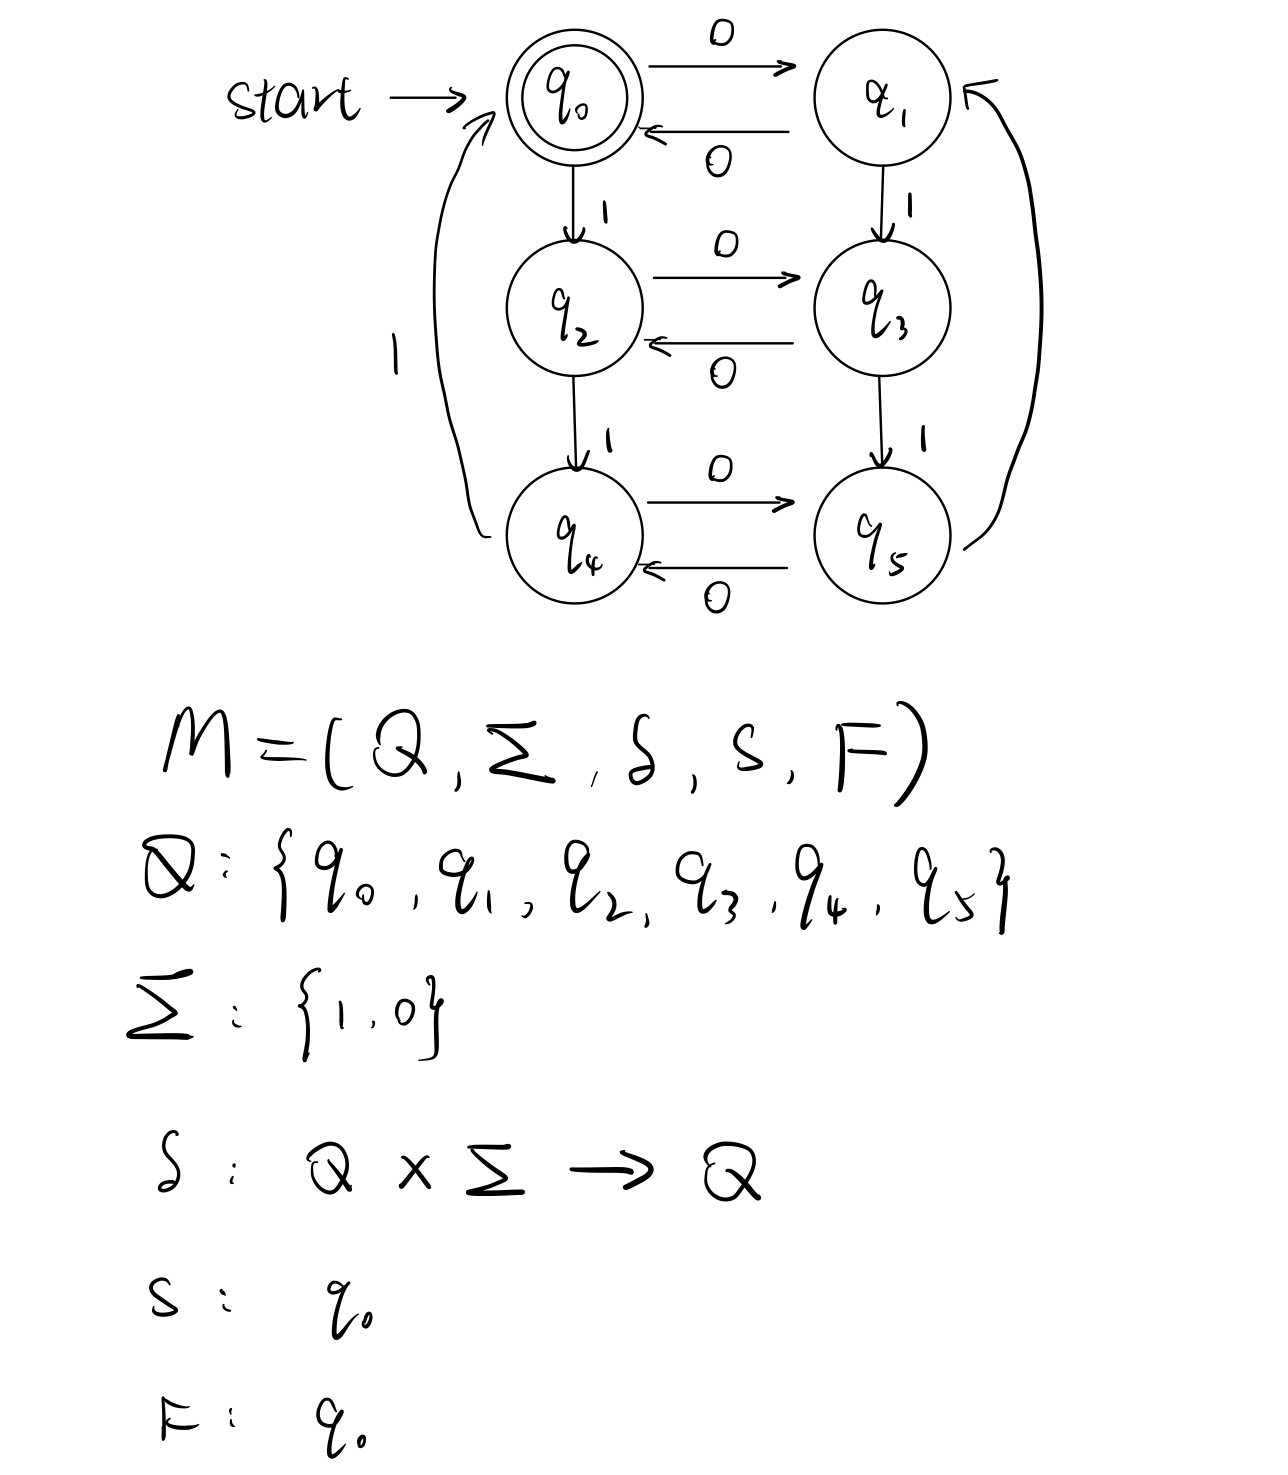 0
start q₀ q₁
0
1 1
0
q₂ q₃
1
0
1 1
0
q₄ q₅
0
M = (Q, Σ, δ, s, F)
Q : {q₀, q₁, q₂, q₃, q₄, q₅}
Σ : {1, 0}
δ : Q × Σ → Q
s : q₀
F : q₀